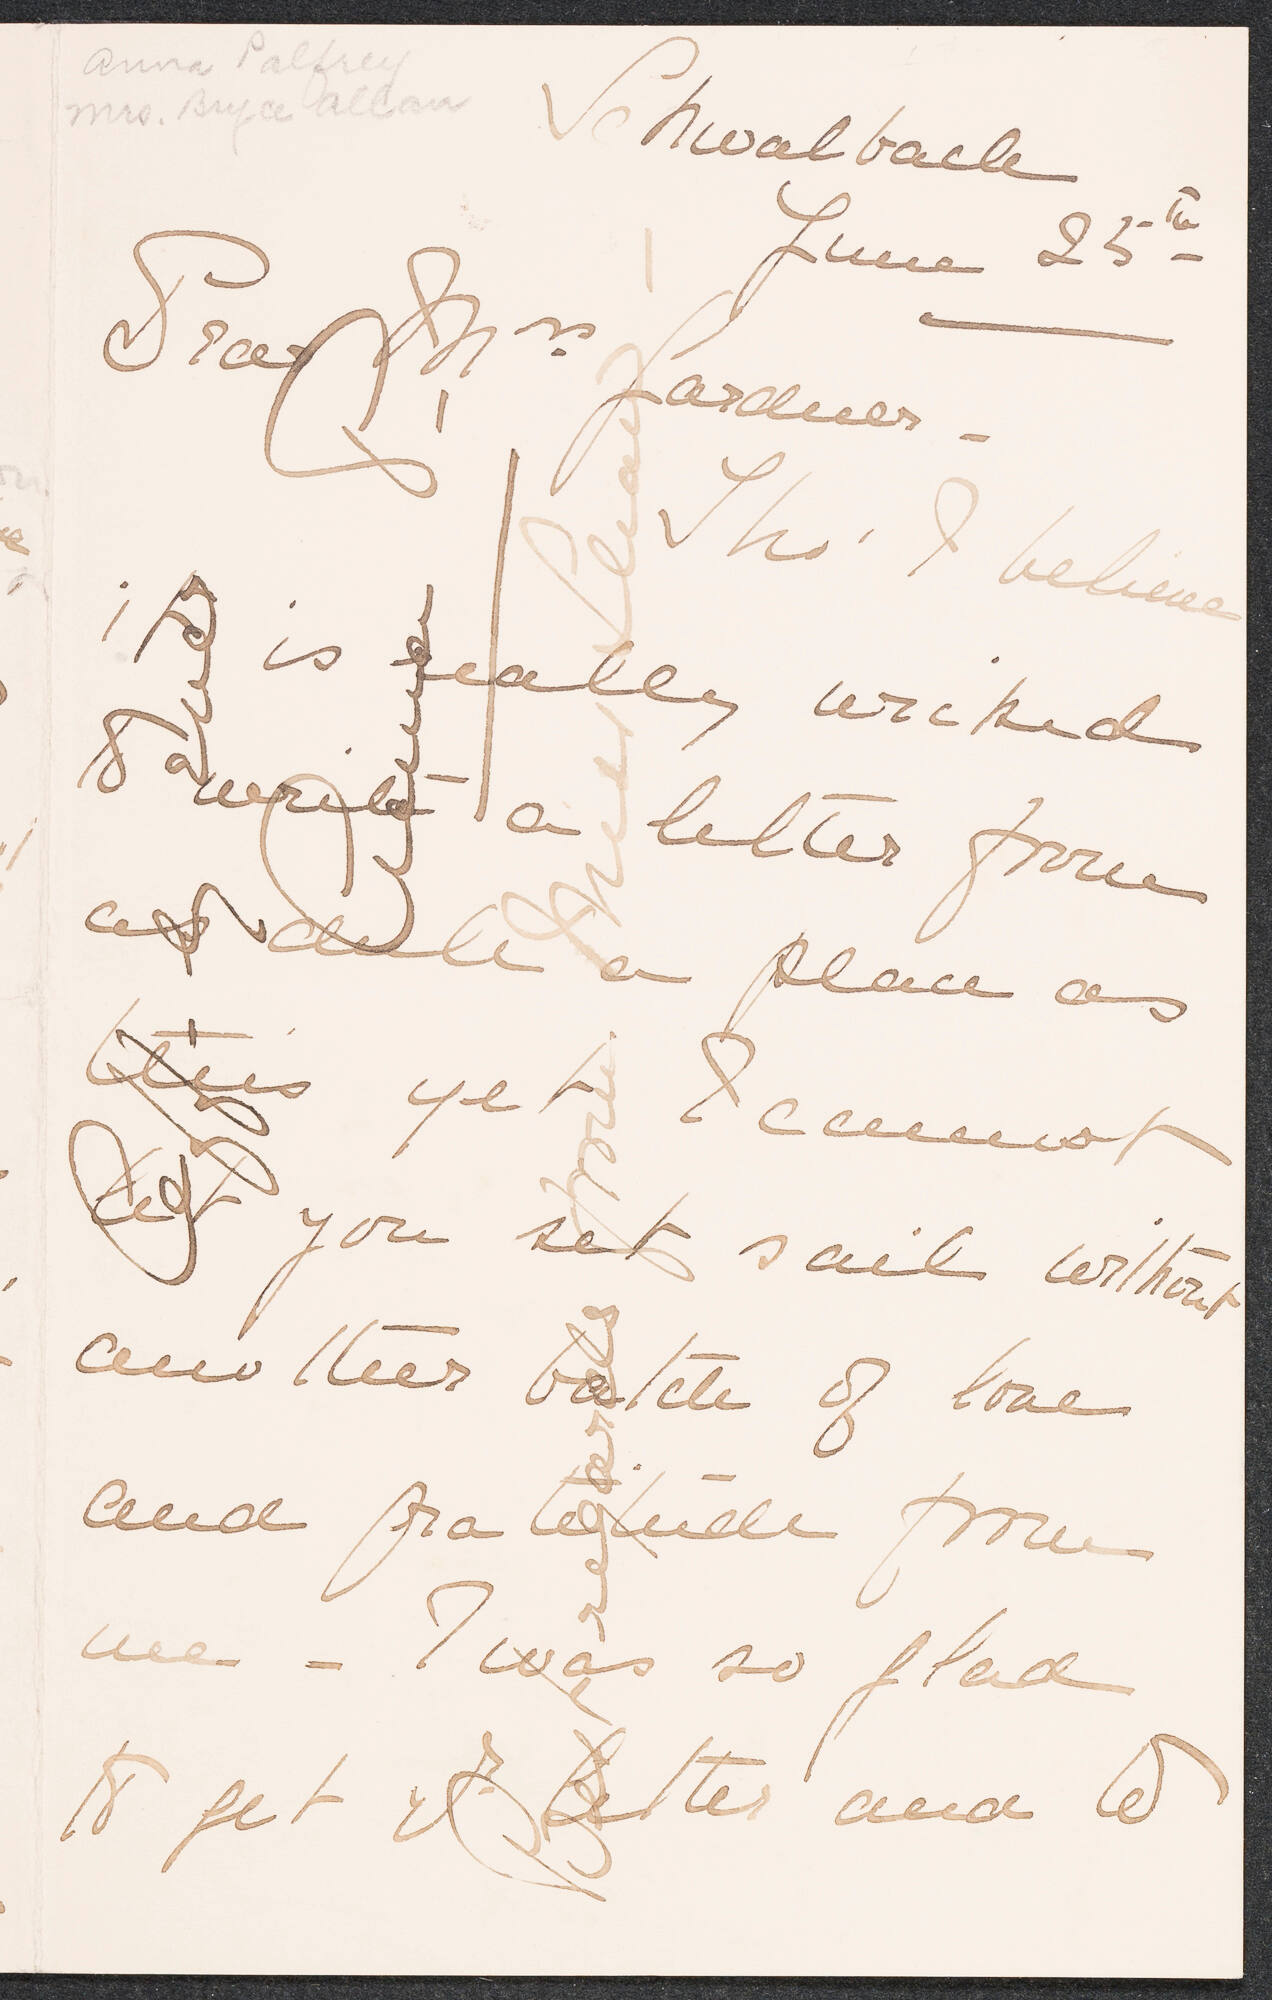 Anna Palfrey
Mrs. Bryce Allan
Schwalbach
June 25th
Dear Mrs. Gardner -
Tho' I believe
it is really wicked
to write a letter from
as dull a place as
this yet I cannot
let you set sail without
another batch of love
and gratitude from
me - I was so glad
to get yr. letter and to